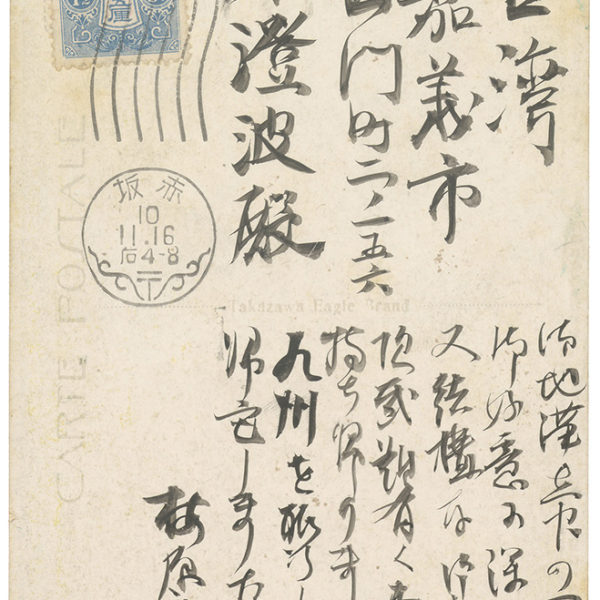 湾
嘉義市
門町二ノ一五六
澄波殿
赤坂
10
11.16
后4-8
CARTE POSTALE
Takazawa Eagle Brand
御地滞在中の
御好意に深
又結構な
頂戴難有く
持ち帰りま
九州を
帰宅しました
梅原